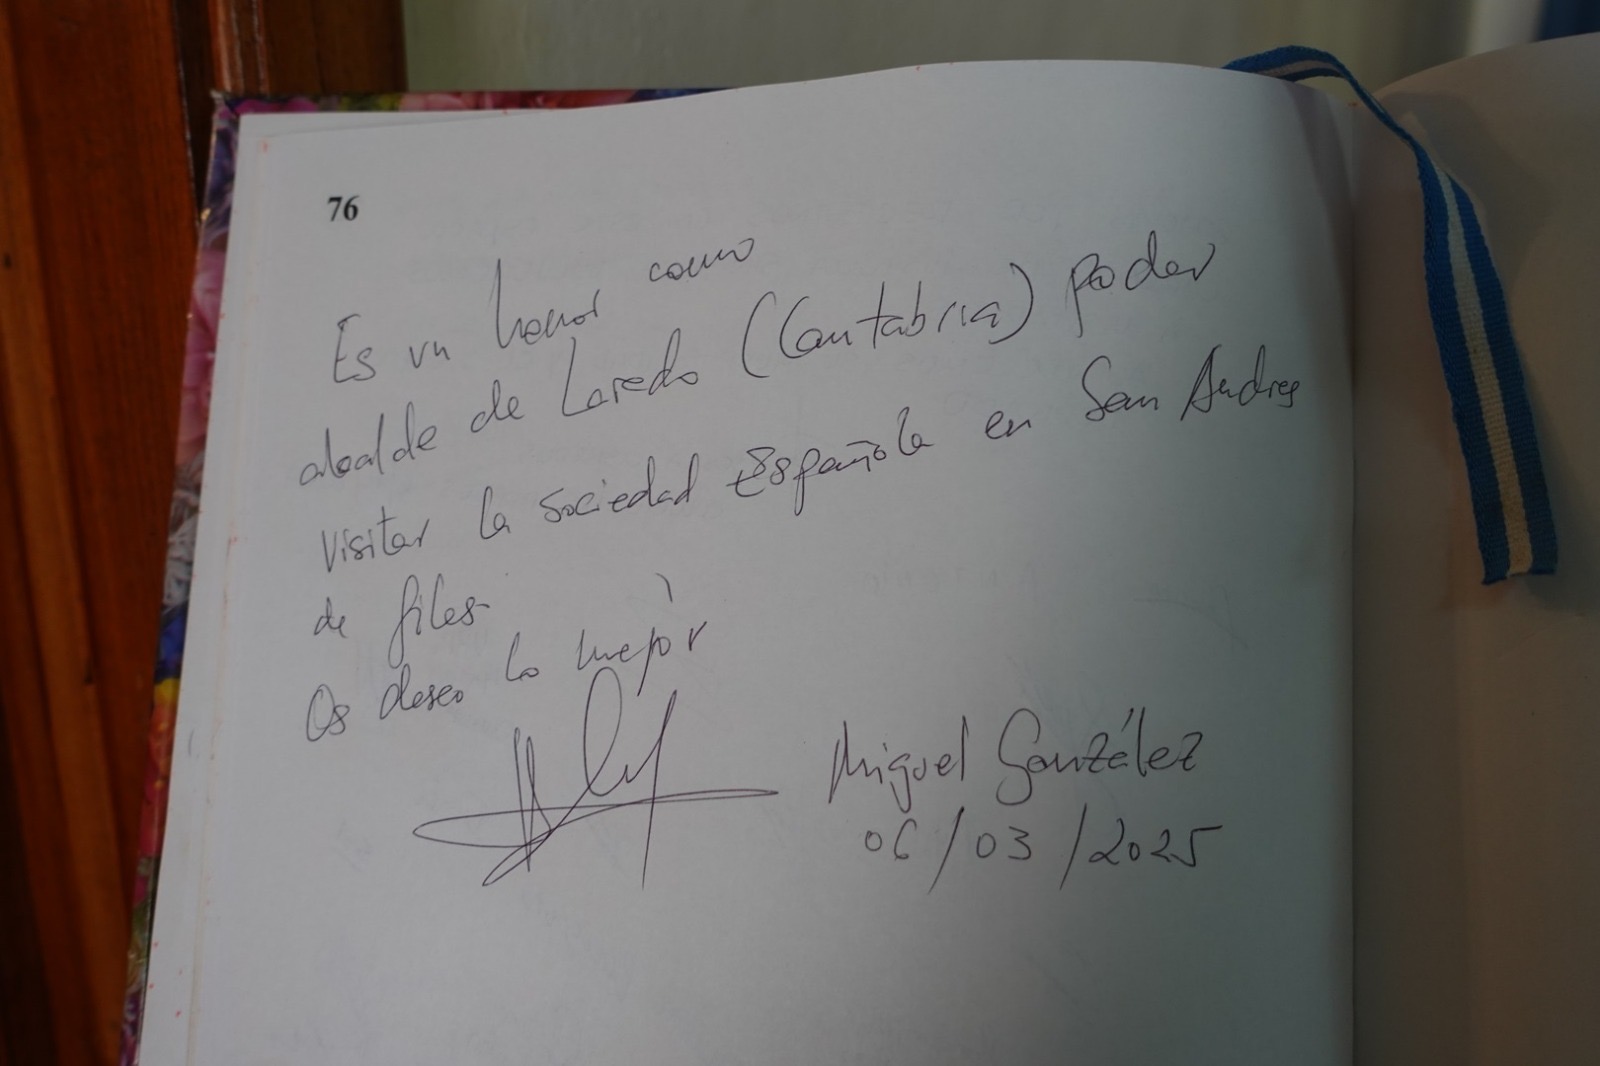 76
Es un honor como
alcalde de Laredo (Cantabria) poder
visitar la sociedad Española en San Andres
de Giles
Os deseo lo mejor
Miguel González
06/03/2025